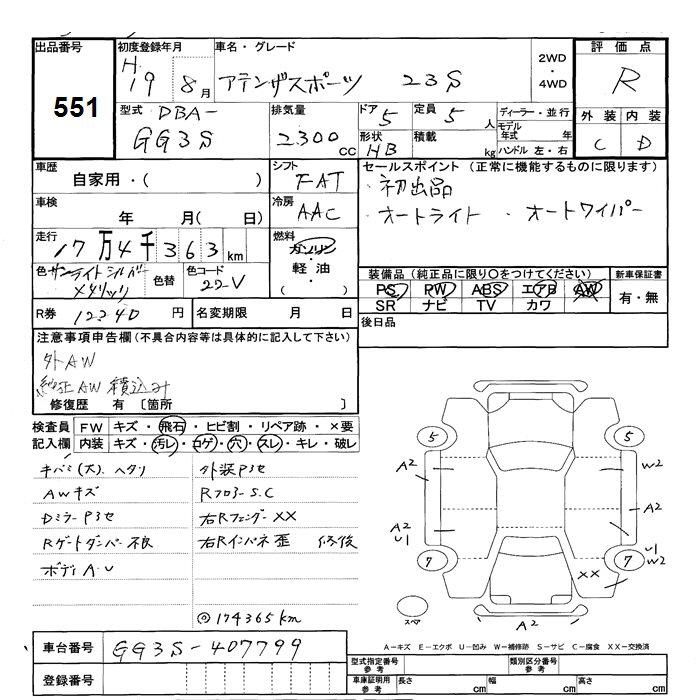 出品番号
551
初度登録年月
H 19 年 8 月
車名・グレード
アテンザスポーツ 23S
2WD
・
4WD
評価点
R
型式 DBA-
GG3S
排気量
2300 cc
ドア 5
定員 5 人
形状 HB
積載 kg
ディーラー・並行
モデル年式 年
ハンドル 左・右
外装 内装
C D
車歴
自家用・( )
シフト
FAT
セールスポイント (正常に機能するものに限ります)
・初出品
・オートライト ・オートワイパー
車検
年 月( 日)
冷房
AAC
走行
17万4千363km
燃料
ガソリン
・
軽油
( ・ )
色 サンライトシルバーメタリック
色替
色コード
22V
装備品 (純正品に限り○をつけてください)
PS PW ABS エアB AW
SR ナビ TV カワ
新車保証書
有・無
R券 12240 円
名変期限 月 日
後日品
注意事項申告欄 (不具合内容等は具体的に記入して下さい)
外AW
純正AW積込み
修復歴 有 〔箇所 〕
検査員記入欄
FW キズ・飛石・ヒビ割・リペア跡・×要
内装 キズ・汚レ・コゲ・穴・スレ・キレ・破レ
キバミ(大)、ヘタリ
AWキズ
DミラーP3セ
Rゲートダンパー不良
ボディA・U
外装P3セ
RフロアーS.C
右Rフェンダー XX
右Rインパネ歪 修後
◎174365km
5
5
7
7
A2
A2
U1
W2
A2
U1
W2
XX
A2
スペア
A-キズ E-エクボ U-凹み W-補修跡 S-サビ C-腐食 XX-交換済
車台番号 GG3S-407799
登録番号
型式指定番号
参考
類別区分番号
参考
車庫証明用
参考
長さ cm
幅 cm
高さ cm